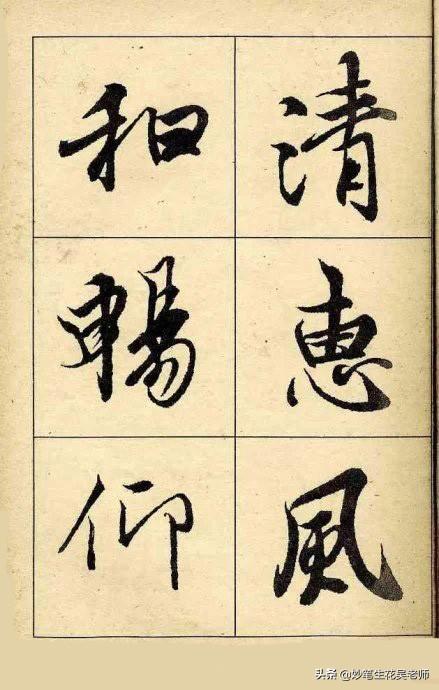 清惠風
和暢仰
头条 @妙笔生花吴老师